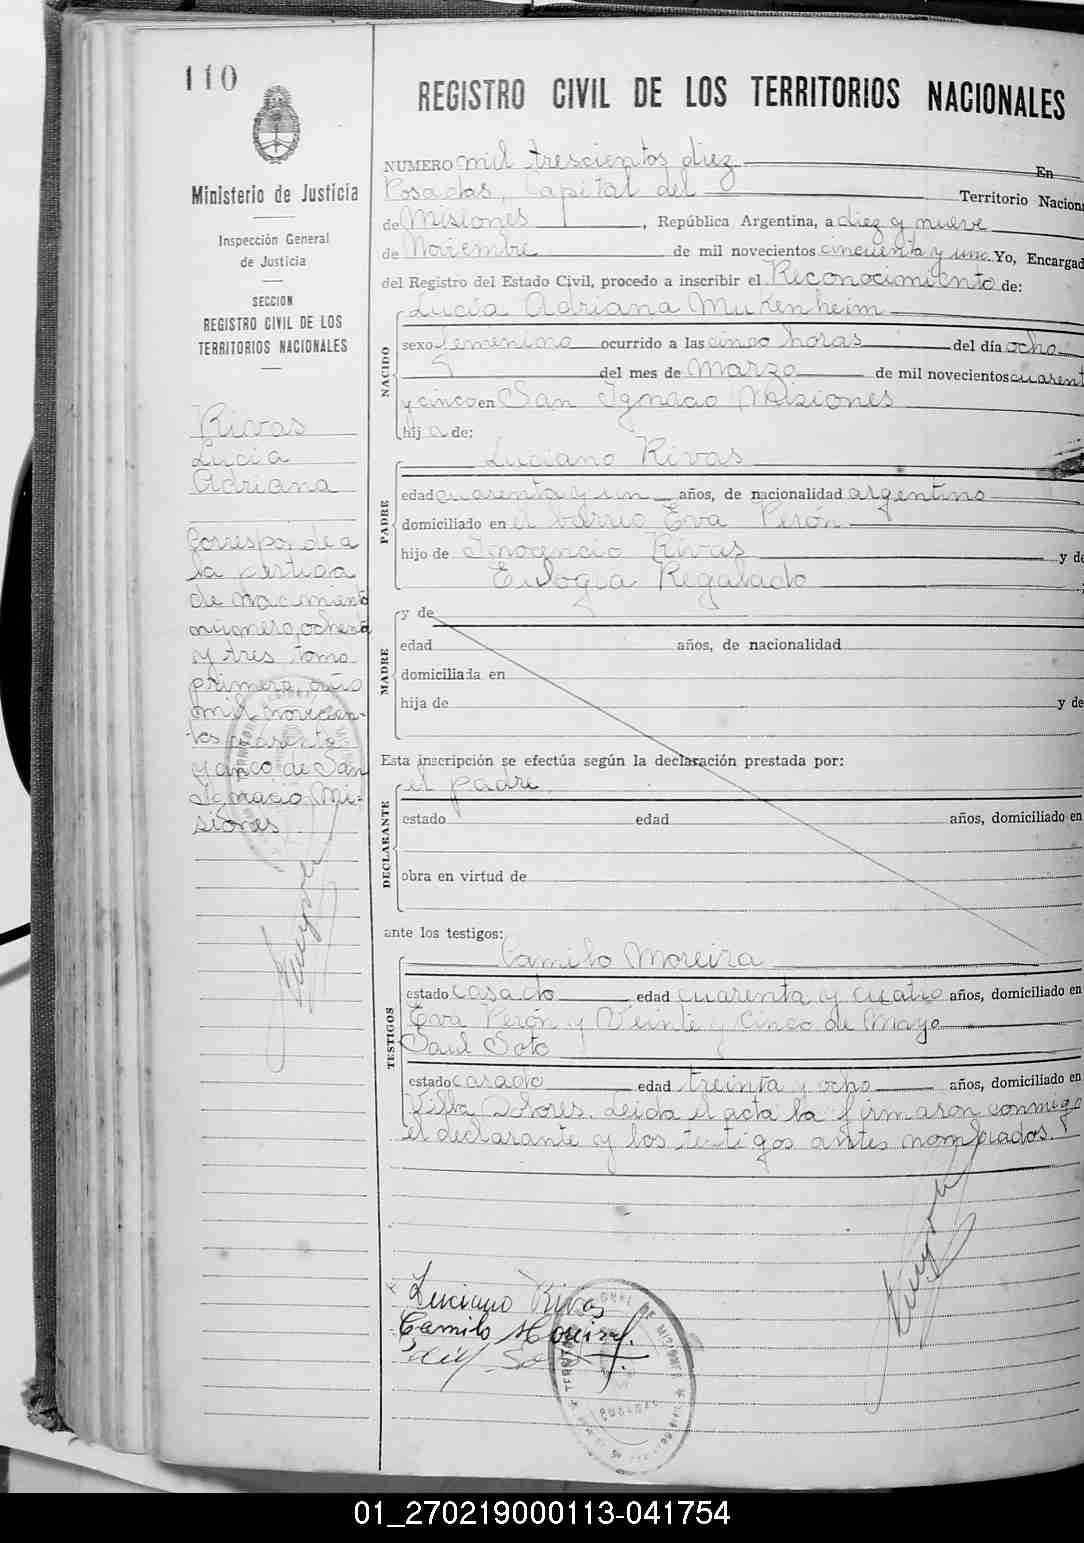 110
Ministerio de Justicia
Inspección General
de Justicia
SECCION
REGISTRO CIVIL DE LOS
TERRITORIOS NACIONALES
Rivas
Lucía
Adriana
Corresponde a
la partida
de nacimiento
número ochenta
y tres tomo
primero, año
mil novecien-
tos cuarenta
y cinco de San
Ignacio Mi-
siones
REGISTRO CIVIL DE LOS TERRITORIOS NACIONALES
NUMERO mil trescientos diez En
Posadas, Capital del Territorio Nacion
de Misiones, República Argentina, a diez y nueve
de Noviembre de mil novecientos cincuenta y uno. Yo, Encargad
del Registro del Estado Civil, procedo a inscribir el Reconocimiento de:
NACIDO
Lucía Adriana Mukenheim
sexo femenino ocurrido a las cinco horas del día ocho
del mes de Marzo de mil novecientos cuarent
y cinco en San Ignacio Misiones
hija de:
PADRE
Luciano Rivas
edad cuarenta y un años, de nacionalidad argentino
domiciliado en el barrio Eva Perón
hijo de Inocencio Rivas y de
Eulogia Regalado
MADRE
y de
edad años, de nacionalidad
domiciliada en
hija de y de
Esta inscripción se efectúa según la declaración prestada por:
DECLARANTE
el padre
estado edad años, domiciliado en
obra en virtud de
ante los testigos:
TESTIGOS
Camilo Moreira
estado casado edad cuarenta y cuatro años, domiciliado en
Eva Perón y Veinte y Cinco de Mayo
Saul Soto
estado casado edad treinta y ocho años, domiciliado en
Villa Dolores. Leida el acta la firmaron conmigo
el declarante y los testigos antes nombrados.
Luciano Rivas
Camilo Moreira
Soto
01_270219000113-041754